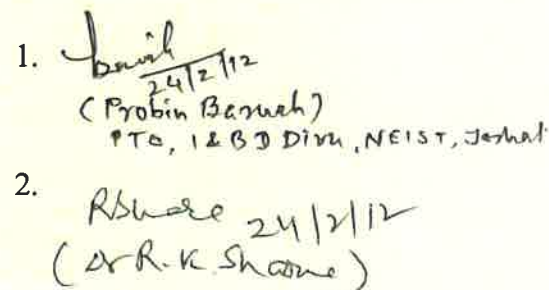 1.
24/2/12
(Probin Baruah)
PTO, I & BD Divn, NEIST, Jorhat
2.
RSharma 24/2/12
(Dr R.K. Sharma)